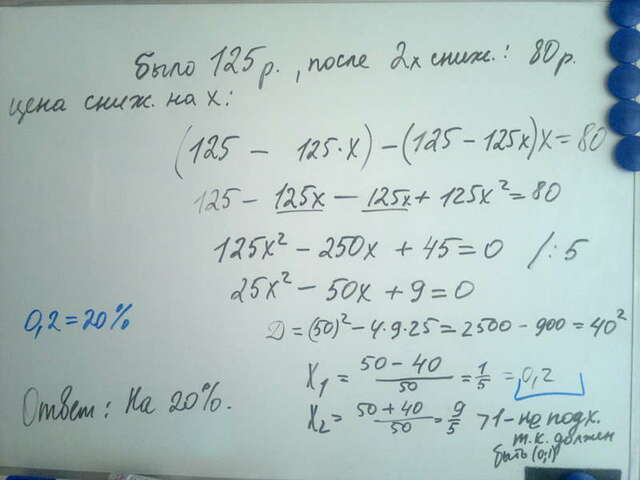 Было 125р., после 2х сниж.: 80р.
цена сниж. на x:
(125 - 125·x) - (125 - 125x)x = 80
125 - 125x - 125x + 125x² = 80
125x² - 250x + 45 = 0 /:5
25x² - 50x + 9 = 0
0,2 = 20%
D = (50)² - 4·9·25 = 2500 - 900 = 40²
x₁ = (50 - 40)/50 = 1/5 = 0,2
Ответ: На 20%.
x₂ = (50 + 40)/50 = 9/5 >1 - не подх.
т.к. должен
быть (0;1)